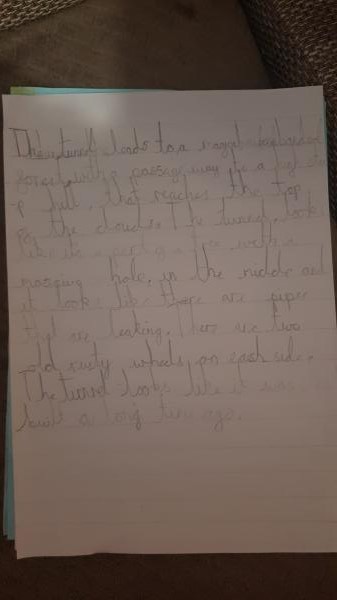 The tunnel leads to a magical
forest with a passage way be a big ste
-p hill, that reaches the top
of the clouds. The tunnel, looks
like its a part of a tree with a
massive hole, in the middle and
it looks like there are pipes
that are leaking. There are two
old rusty wheels on each side.
The tunnel looks like it was
built a long time ago.